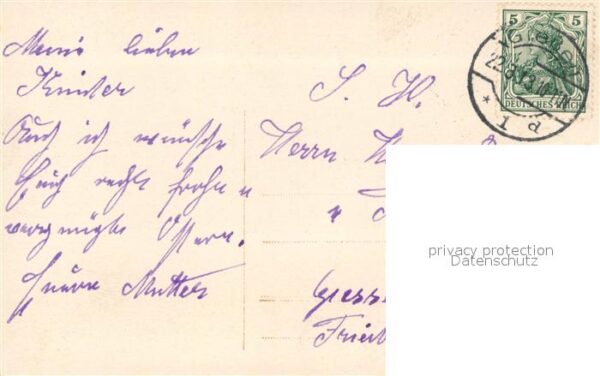 Meine lieben
Kinder
Auch ich wünsche
Euch recht frohe u
vergnügte Ostern.
Euere Mutter
S. H.
Herrn
Giess
Fried
5 5
DEUTSCHES REICH
* 1 d
privacy protection
Datenschutz